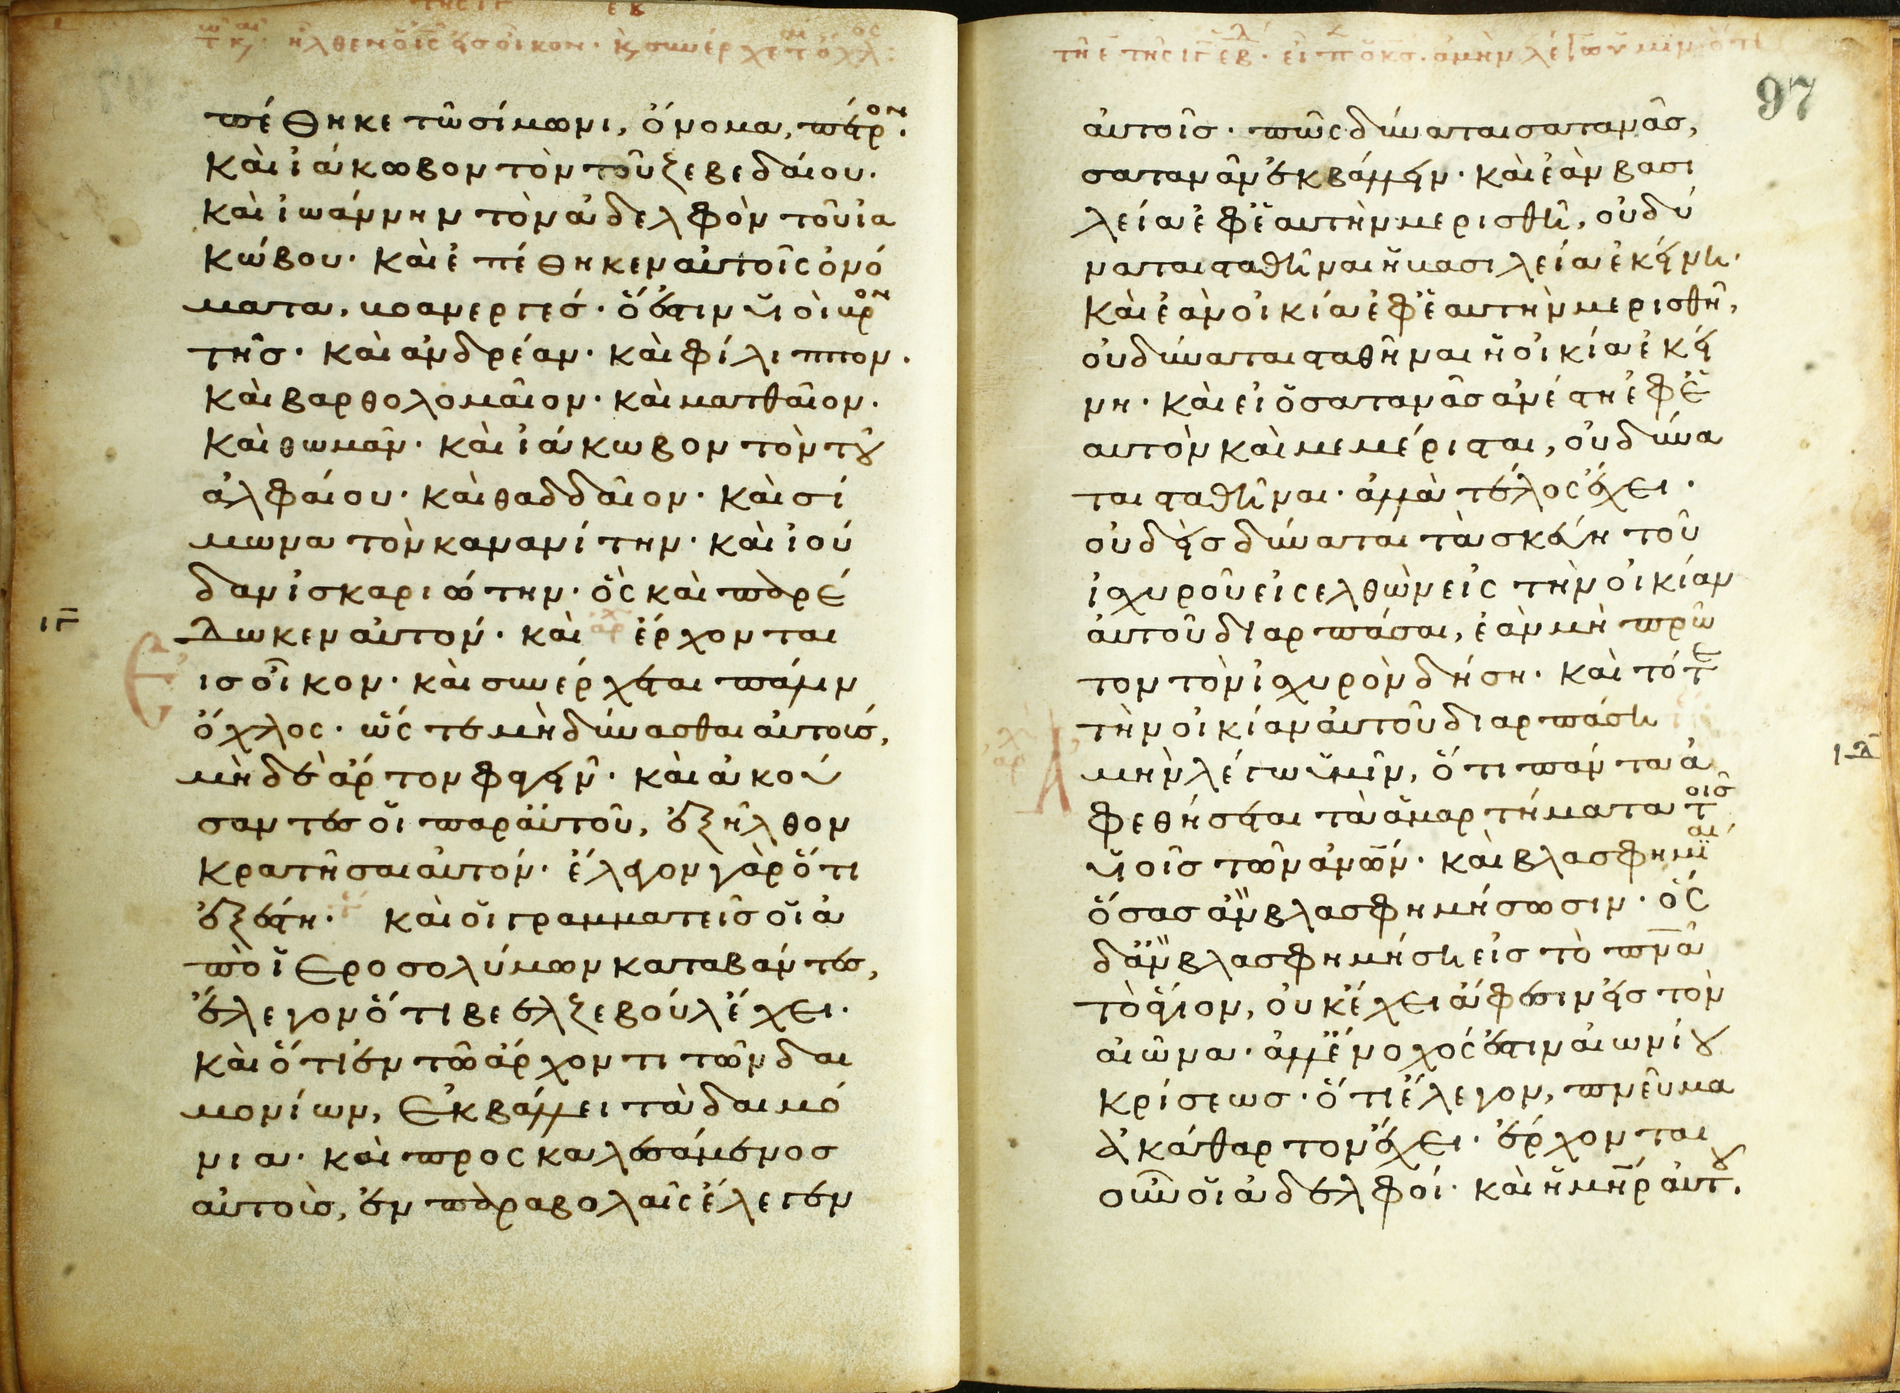 πέθηκε τῶ σίμωνι, ὄνομα, πέτρον.
καὶ ἰάκωβον τὸν τοῦ ζεβεδαίου.
καὶ ἰωάννην τὸν ἀδελφὸν τοῦ ἰα
κώβου· καὶ ἐπέθηκεν αὐτοῖς ὀνό
ματα, βοανεργές· ὅ ἐστιν υἱοὶ βρον
τῆς· καὶ ἀνδρέαν· καὶ φίλιππον.
καὶ βαρθολομαῖον· καὶ ματθαῖον.
καὶ θωμᾶν· καὶ ἰάκωβον τὸν τοῦ
ἀλφαίου· καὶ θαδδαῖον· καὶ σί
μωνα τὸν κανανίτην· καὶ ἰού
δαν ἰσκαριώτην· ὃς καὶ παρέ
δωκεν αὐτόν· καὶ ἔρχονται
ιγ
εἰς οἶκον· καὶ συνέρχεται πάλιν
ὄχλος· ὥς τε μὴ δύνασθαι αὐτοὺς,
μὴ δὲ ἄρτον φαγεῖν· καὶ ἀκού
σαντες οἱ παρ' αὐτοῦ, ἐξῆλθον
κρατῆσαι αὐτόν· ἔλεγον γὰρ ὅτι
ἐξέστη· καὶ οἱ γραμματεῖς οἱ ἀ
πὸ ἱεροσολύμων καταβάντες,
ἔλεγον ὅτι βεελζεβοὺλ ἔχει·
καὶ ὅτι ἐν τῶ ἄρχοντι τῶν δαι
μονίων, ἐκβάλλει τὰ δαιμό
νια· καὶ προσκαλεσάμενος
αὐτοὺς, ἐν παραβολαῖς ἔλεγεν
97
αὐτοῖς· πῶς δύναται σατανᾶς,
σατανᾶν ἐκβάλλειν· καὶ ἐὰν βασι
λεία ἐφ' ἑαυτὴν μερισθῆ, οὐ δύ
ναται σταθῆναι ἡ βασιλεία ἐκείνη·
καὶ ἐὰν οἰκία ἐφ' ἑαυτὴν μερισθῆ,
οὐ δύναται σταθῆναι ἡ οἰκία ἐκεί
νη· καὶ εἰ ὁ σατανᾶς ἀνέστη ἐφ' ἑ
αυτὸν καὶ μεμέρισται, οὐ δύνα
ται σταθῆναι· ἀλλὰ τέλος ἔχει·
οὐδεὶς δύναται τὰ σκεύη τοῦ
ἰσχυροῦ εἰσελθὼν εἰς τὴν οἰκίαν
αὐτοῦ διαρπάσαι, ἐὰν μὴ πρῶ
τον τὸν ἰσχυρὸν δήση· καὶ τότε
τὴν οἰκίαν αὐτοῦ διαρπάση
ιδ
Ἀμὴν λέγω ὑμῖν, ὅτι πάντα ἀ
φεθήσεται τὰ ἁμαρτήματα τοῖς
υἱοῖς τῶν ἀνων· καὶ βλασφημίαι
ὅσας ἂν βλασφημήσωσιν· ὃς
δ' ἂν βλασφημήση εἰς τὸ πνα
τὸ ἅγιον, οὐκ ἔχει ἄφεσιν εἰς τὸν
αἰῶνα· ἀλλ' ἔνοχός ἐστιν αἰωνίου
κρίσεως· ὅτι ἔλεγον, πνεῦμα
ἀκάθαρτον ἔχει· ἔρχονται
οὖν οἱ ἀδελφοί· καὶ ἡ μηρ αὐτοῦ.